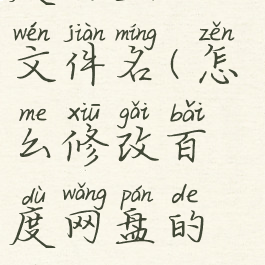 wén jiàn míng zěn
文件名(怎
me xiū gǎi bǎi
么修改百
dù wǎng pán de
度网盘的